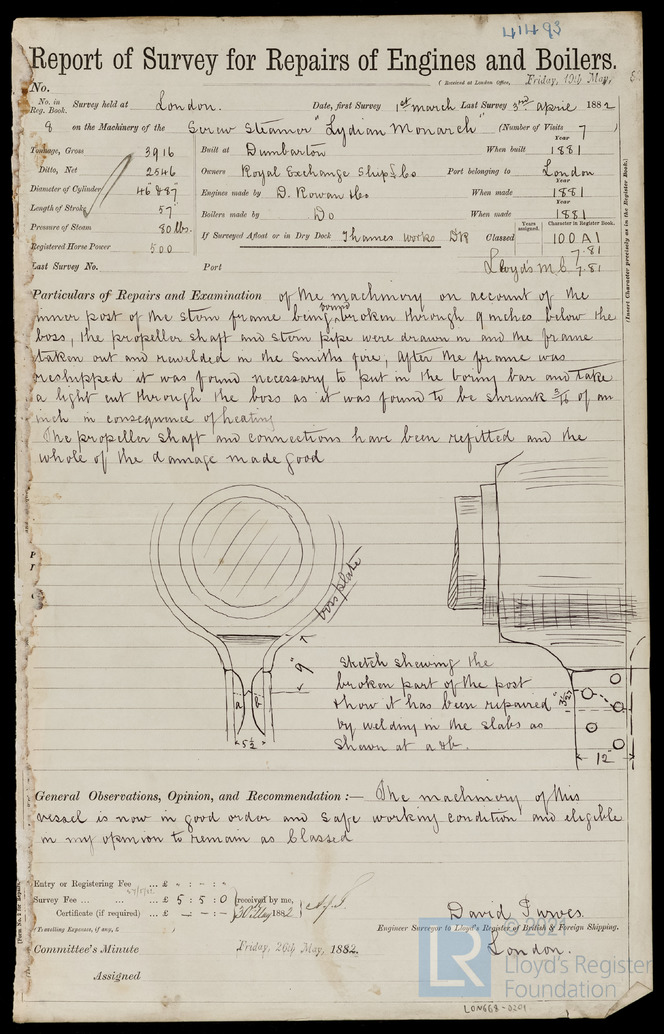 41493
Report of Survey for Repairs of Engines and Boilers.
(Received at London Office, Friday, 19th May,
No.
No. in Reg. Book. Survey held at London. Date, first Survey 1st March Last Survey 3rd April 1882
8 on the Machinery of the Screw Steamer "Lydian Monarch" (Number of Visits 7)
Tonnage, Gross 3916 Built at Dumbarton When built Year 1881
Ditto, Net 2546 Owners Royal Exchange Ship Co Port belonging to London
Diameter of Cylinder 46" & 87" Engines made by D. Rowan & Co When made Year 1881
Length of Stroke 57" Boilers made by Do When made Year 1881
Pressure of Steam 80 lbs. If Surveyed Afloat or in Dry Dock Thames Works DK Classed Years assigned. Character in Register Book. 100 A1
Registered Horse Power 500 7.81
Last Survey No. Port Lloyd's M.C. 7.81
(Insert Character precisely as in the Register Book.)
Particulars of Repairs and Examination of the machinery on account of the
inner post of the stern frame being found broken through 9 inches below the
boss, the propeller shaft and stern pipe were drawn in and the frame
taken out and rewelded in the smiths fire, After the frame was
reshipped it was found necessary to put in the boring bar and take
a light cut through the boss as it was found to be shrunk 3/16 of an
inch in consequence of heating
The propeller shaft and connections have been refitted and the
whole of the damage made good
boss plate
9"
Sketch shewing the
broken part of the post
& how it has been repaired
by welding in the slabs as
shewn at a & b.
a b
5½
12"
General Observations, Opinion, and Recommendation :— The machinery of this
vessel is now in good order and safe working condition and eligible
in my opinion to remain as Classed
Entry or Registering Fee ... £ " : - : -
Survey Fee ... ... ... £ 5 : 5 : 0 received by me,
Certificate (if required) ... £ - : - : - 30 May 1882
(Travelling Expenses, if any, £
David Purves
Engineer Surveyor to Lloyd's Register of British & Foreign Shipping.
London.
Committee's Minute Friday, 26th May, 1882.
Assigned
© 2021
LR
Lloyd's Register
Foundation
LON668-0201